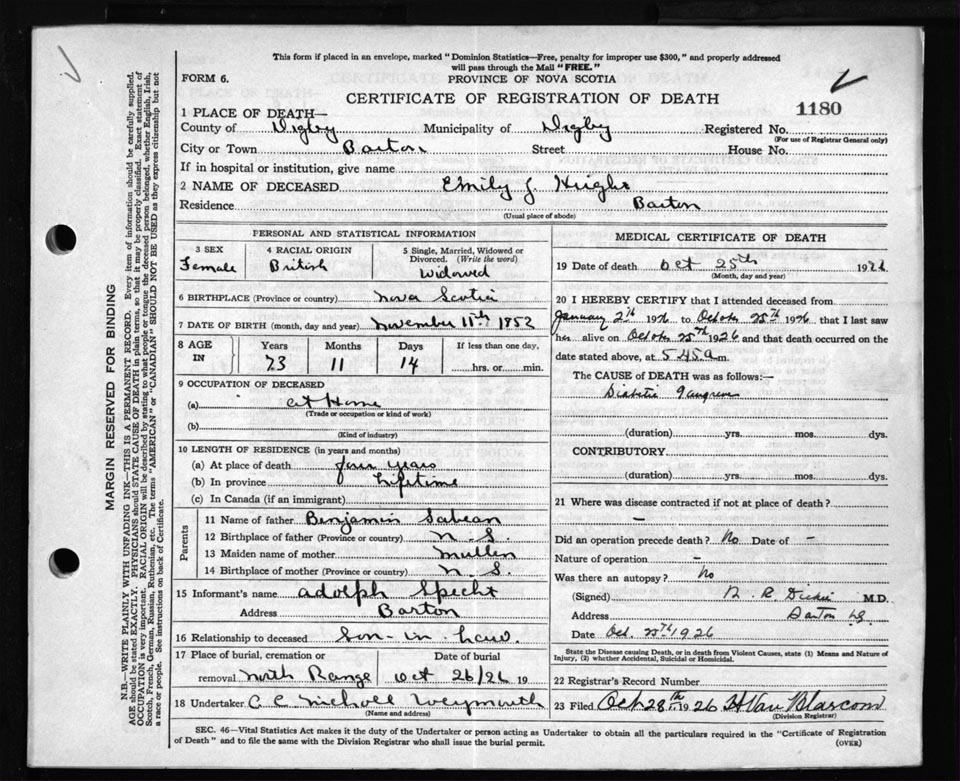 This form if placed in an envelope, marked "Dominion Statistics—Free, penalty for improper use $300," and properly addressed
will pass through the Mail "FREE."
FORM 6.
PROVINCE OF NOVA SCOTIA
CERTIFICATE OF REGISTRATION OF DEATH
1180
1 PLACE OF DEATH—
County of Digby Municipality of Digby Registered No.
(For use of Registrar General only)
City or Town Barton Street House No.
If in hospital or institution, give name
2 NAME OF DECEASED Emily J. Hught
Residence Barton
(Usual place of abode)
PERSONAL AND STATISTICAL INFORMATION
3 SEX Female
4 RACIAL ORIGIN British
5 Single, Married, Widowed or
Divorced. (Write the word)
Widowed
6 BIRTHPLACE (Province or country) Nova Scotia
7 DATE OF BIRTH (month, day and year) November 11th 1852
8 AGE IN Years Months Days If less than one day,
73 11 14 hrs. or min.
9 OCCUPATION OF DECEASED
(a) At Home
(Trade or occupation or kind of work)
(b)
(Kind of industry)
10 LENGTH OF RESIDENCE (in years and months)
(a) At place of death four years
(b) In province Lifetime
(c) In Canada (if an immigrant)
Parents
11 Name of father Benjamin Sabean
12 Birthplace of father (Province or country) N. S.
13 Maiden name of mother Mullen
14 Birthplace of mother (Province or country) N. S.
15 Informant's name Adolph Specht
Address Barton
16 Relationship to deceased Son-in-Law.
17 Place of burial, cremation or Date of burial
removal North Range Oct 26/26 19
18 Undertaker C C Nicholl Weymouth
(Name and address)
MEDICAL CERTIFICATE OF DEATH
19 Date of death Oct 25th 1926
(Month, day and year)
20 I HEREBY CERTIFY that I attended deceased from
January 2th 1926 to October 25th 1926 that I last saw
her alive on October 25th 1926 and that death occurred on the
date stated above, at 5.45 a m.
The CAUSE of DEATH was as follows:—
Diabetic gangrene
(duration) yrs. mos. dys.
CONTRIBUTORY
(duration) yrs. mos. dys.
21 Where was disease contracted if not at place of death?
—
Did an operation precede death? No Date of —
Nature of operation —
Was there an autopsy? No
(Signed) M.D.
Address Barton N.S.
Date Oct. 25th 1926
State the Disease causing Death, or in death from Violent Causes, state (1) Means and Nature of
Injury, (2) whether Accidental, Suicidal or Homicidal.
22 Registrar's Record Number
23 Filed Oct 28th 1926 H Van Blarcom
(Division Registrar)
SEC. 46—Vital Statistics Act makes it the duty of the Undertaker or person acting as Undertaker to obtain all the particulars required in the "Certificate of Registration
of Death" and to file the same with the Division Registrar who shall issue the burial permit.
(OVER)
MARGIN RESERVED FOR BINDING
N.B.—WRITE PLAINLY WITH UNFADING INK—THIS IS A PERMANENT RECORD. Every item of information should be carefully supplied.
AGE should be stated EXACTLY. PHYSICIANS should STATE CAUSE OF DEATH in plain terms, so that it may be properly classified. Exact statement of
OCCUPATION is very important. RACIAL ORIGIN will be described by stating to what people or tongue the deceased person belonged, whether English, Irish,
Scotch, French, German, Russian, Ruthenian, etc. The terms "AMERICAN" or "CANADIAN" SHOULD NOT BE USED as they express citizenship but not
a race or people. See instructions on back of Certificate.